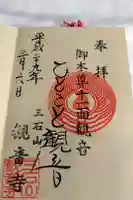 奉拝
御本尊十一面観音
ひとこと観音
三石山
観音寺
平成二十九年
三月六日